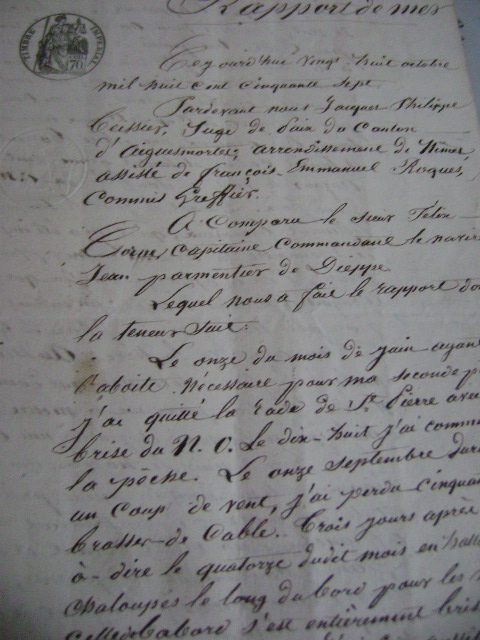 Rapport de mer
TIMBRE IMPERIAL
70
Cejourd'hui vingt-huit octobre
mil huit cent cinquante sept.
Pardevant nous Jacques Philippe
Juge de Paix du Canton
d'Aiguesmortes, arrondissement de Nimes
assisté de françois Emmanuel Roques,
Commis Greffier.
A Comparu le sieur Félix
Capitaine Commandant le navire
Jean parmentier de Dieppe
Lequel nous a fait le rapport do
la teneur suit:
Le onze du mois de juin ayan
l'aboite nécessaire pour ma seconde p
j'ai quitté la rade de St Pierre avec
brise du N. O. Le dix-huit j'ai comm
la pêche. Le onze septembre dura
un Coup de vent, j'ai perdu cinquan
brasses de Cable. Trois jours après
à-dire le quatorze dudit mois en hal
chaloupes le long du bord pour les
celle de babord s'est entièrement bris